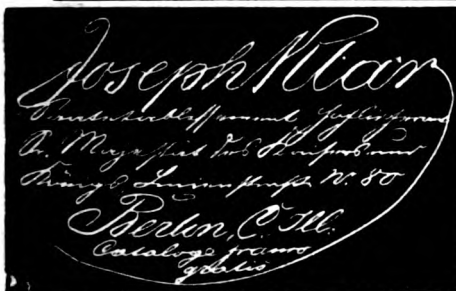 Joseph Klar
Samenetablissement, Hoflieferant
Sr. Majestät des Kaisers und
Königs Linienstraße No. 80
Berlin, C. Ill.
Cataloge franco
gratis